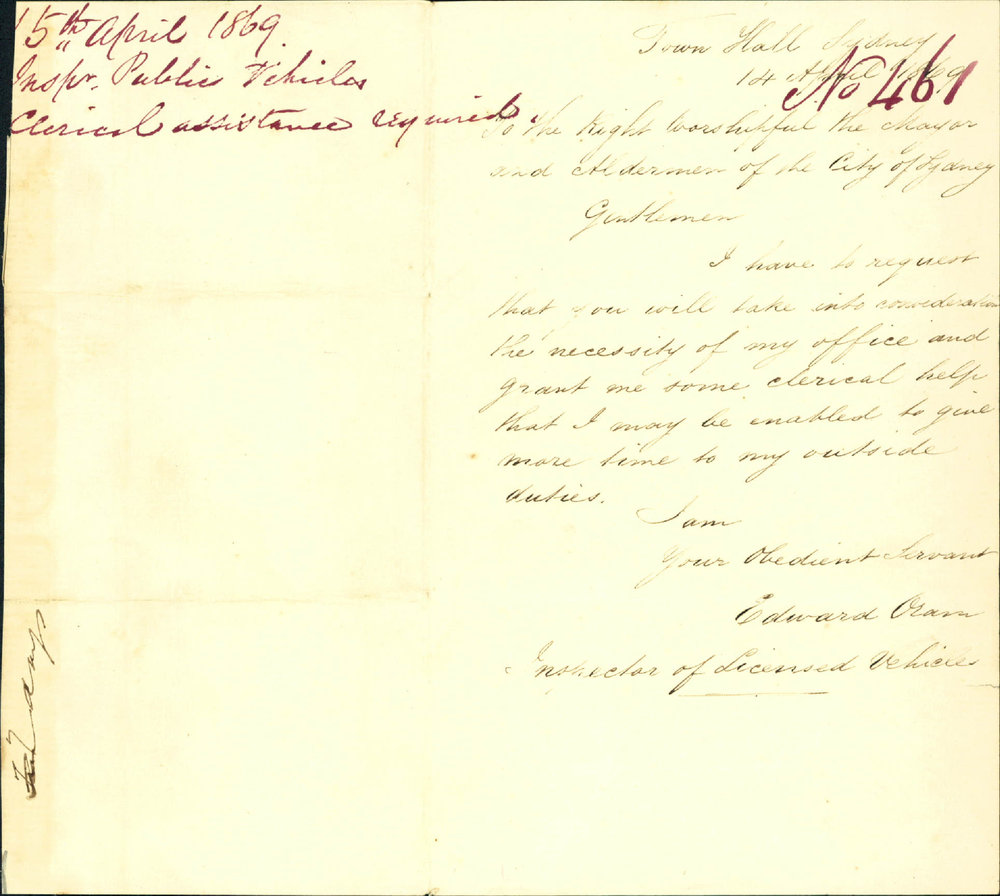 15th April 1869.
Inspr. Public Vehicles
Clerical assistance required.
Town Hall Sydney
14 April 1869
No 461
To the Right Worshipful the Mayor
and Aldermen of the City of Sydney
Gentlemen
I have to request
that you will take into consideration
the necessity of my office and
grant me some clerical help
that I may be enabled to give
more time to my outside
duties.
I am
Your Obedient Servant
Edward Oram
Inspector of Licensed Vehicles
days